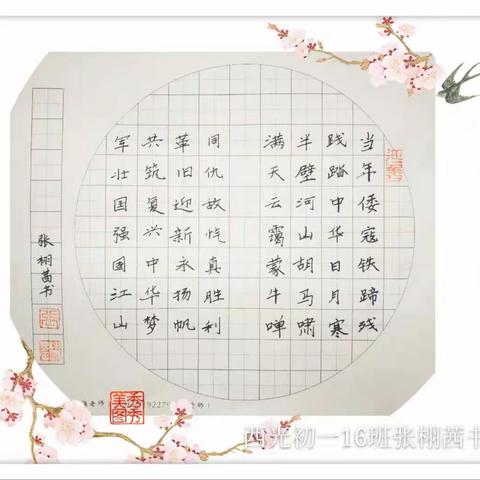 当年倭寇铁蹄残
践踏中华日月寒
半壁河山胡马啸
满天云霭蒙牛啴
同仇敌忾真胜利
革旧迎新永扬帆
共筑复兴中华梦
军壮国强固江山
张栩茜书
美图秀秀
老师
9227
西光初一16班张栩茜书